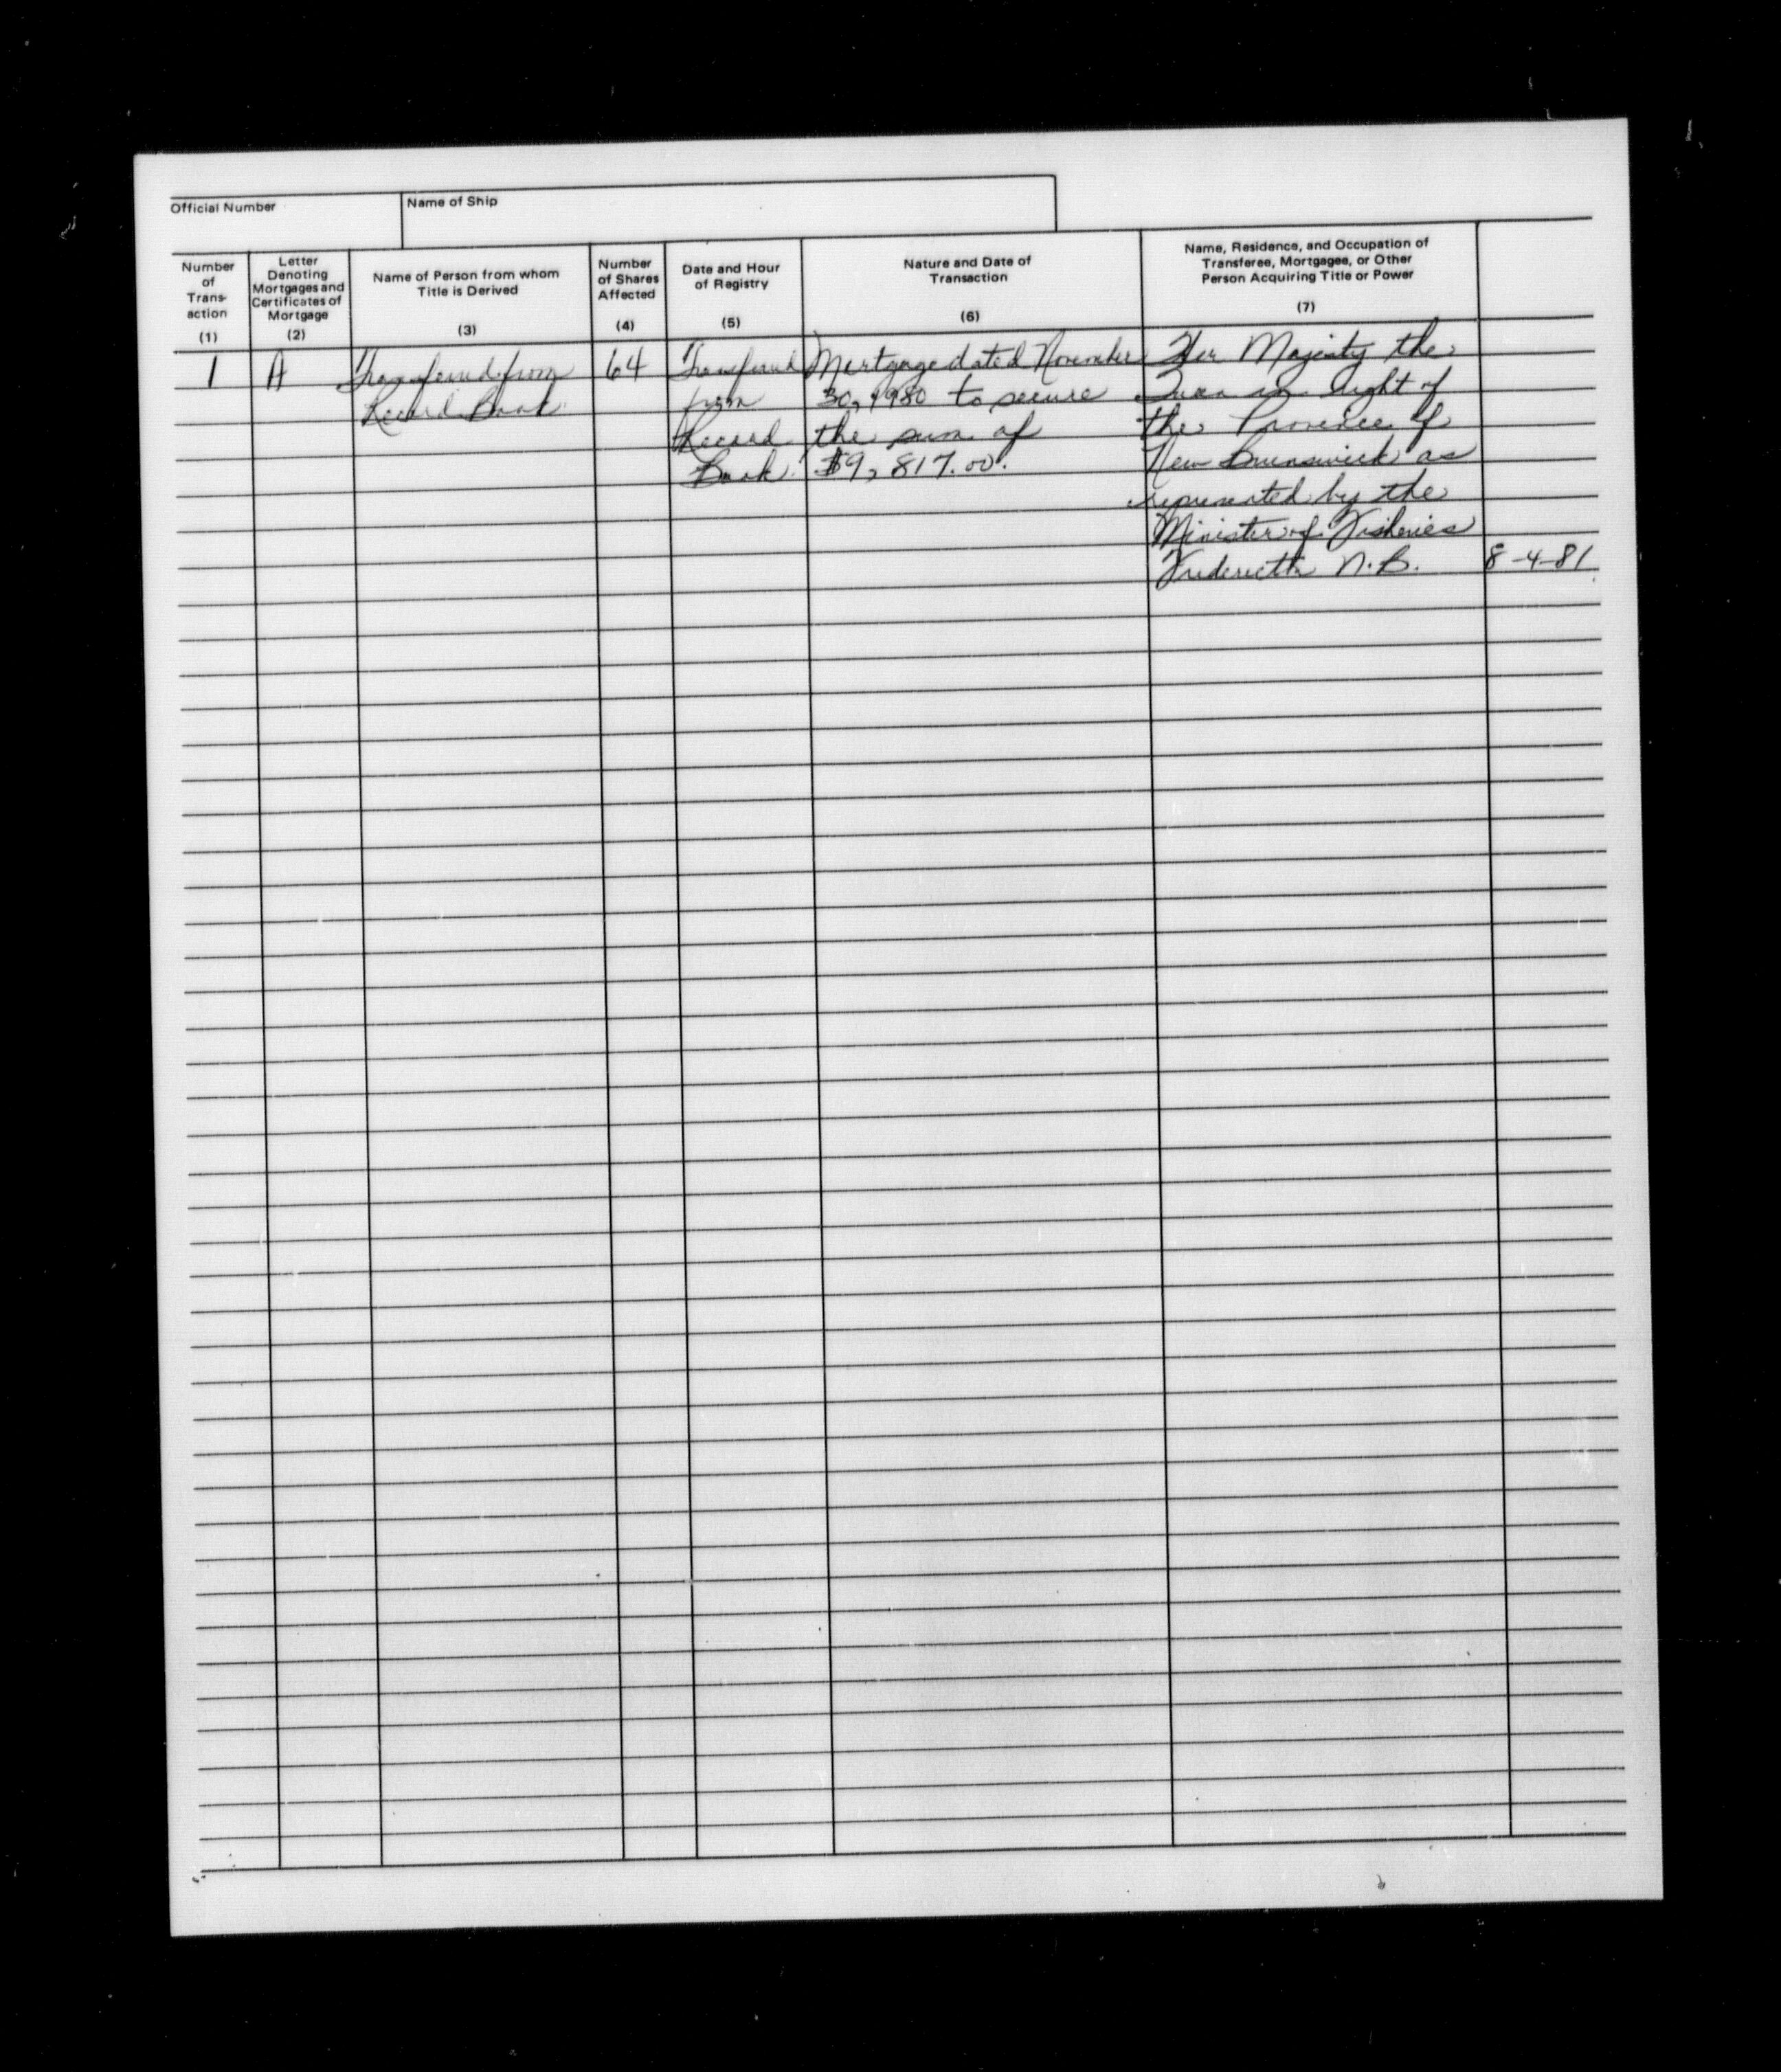 Official Number
Name of Ship
Number
of
Trans-
action
(1)
Letter
Denoting
Mortgages and
Certificates of
Mortgage
(2)
Name of Person from whom
Title is Derived
(3)
Number
of Shares
Affected
(4)
Date and Hour
of Registry
(5)
Nature and Date of
Transaction
(6)
Name, Residence, and Occupation of
Transferee, Mortgagee, or Other
Person Acquiring Title or Power
(7)
1
A
Transferred from
Record Book
64
Transferred
from
Record
Book
Mortgage dated November
30, 1980 to secure
the sum of
$9,817.00.
Her Majesty the
in right of
the Province of
New Brunswick as
represented by the
Minister of Fisheries
Fredericton N.B.
8-4-81